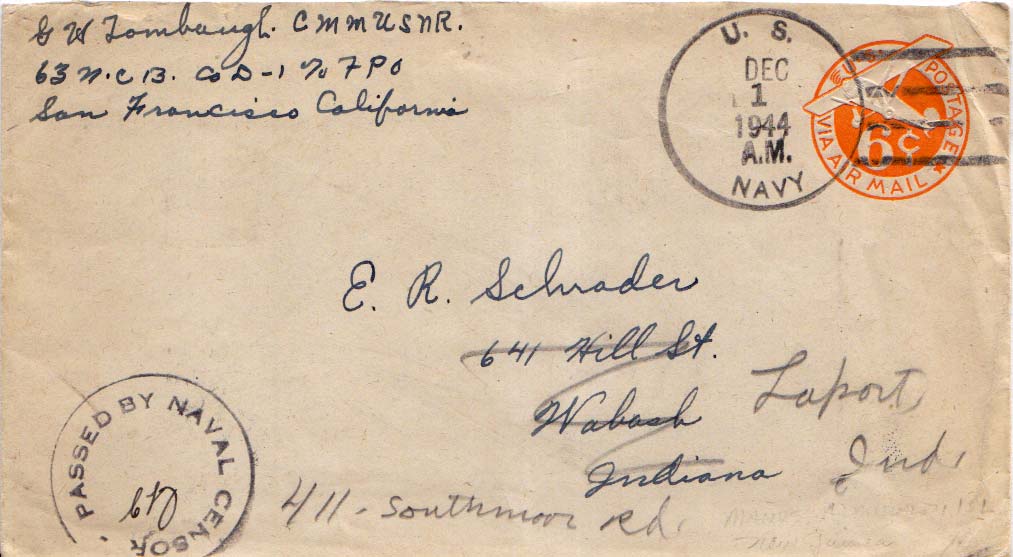 G W Tombaugh. C M M U S N R.
63 N.C B. Co D-1 % F P O
San Francisco California
U. S.
DEC
1
1944
A.M.
NAVY
U.S. POSTAGE
6¢
VIA AIR MAIL
E. R. Schrader
641 Hill St.
Wabash
Laport
Indiana
Ind.
411 - Southmoor Rd.
PASSED BY NAVAL CENSOR